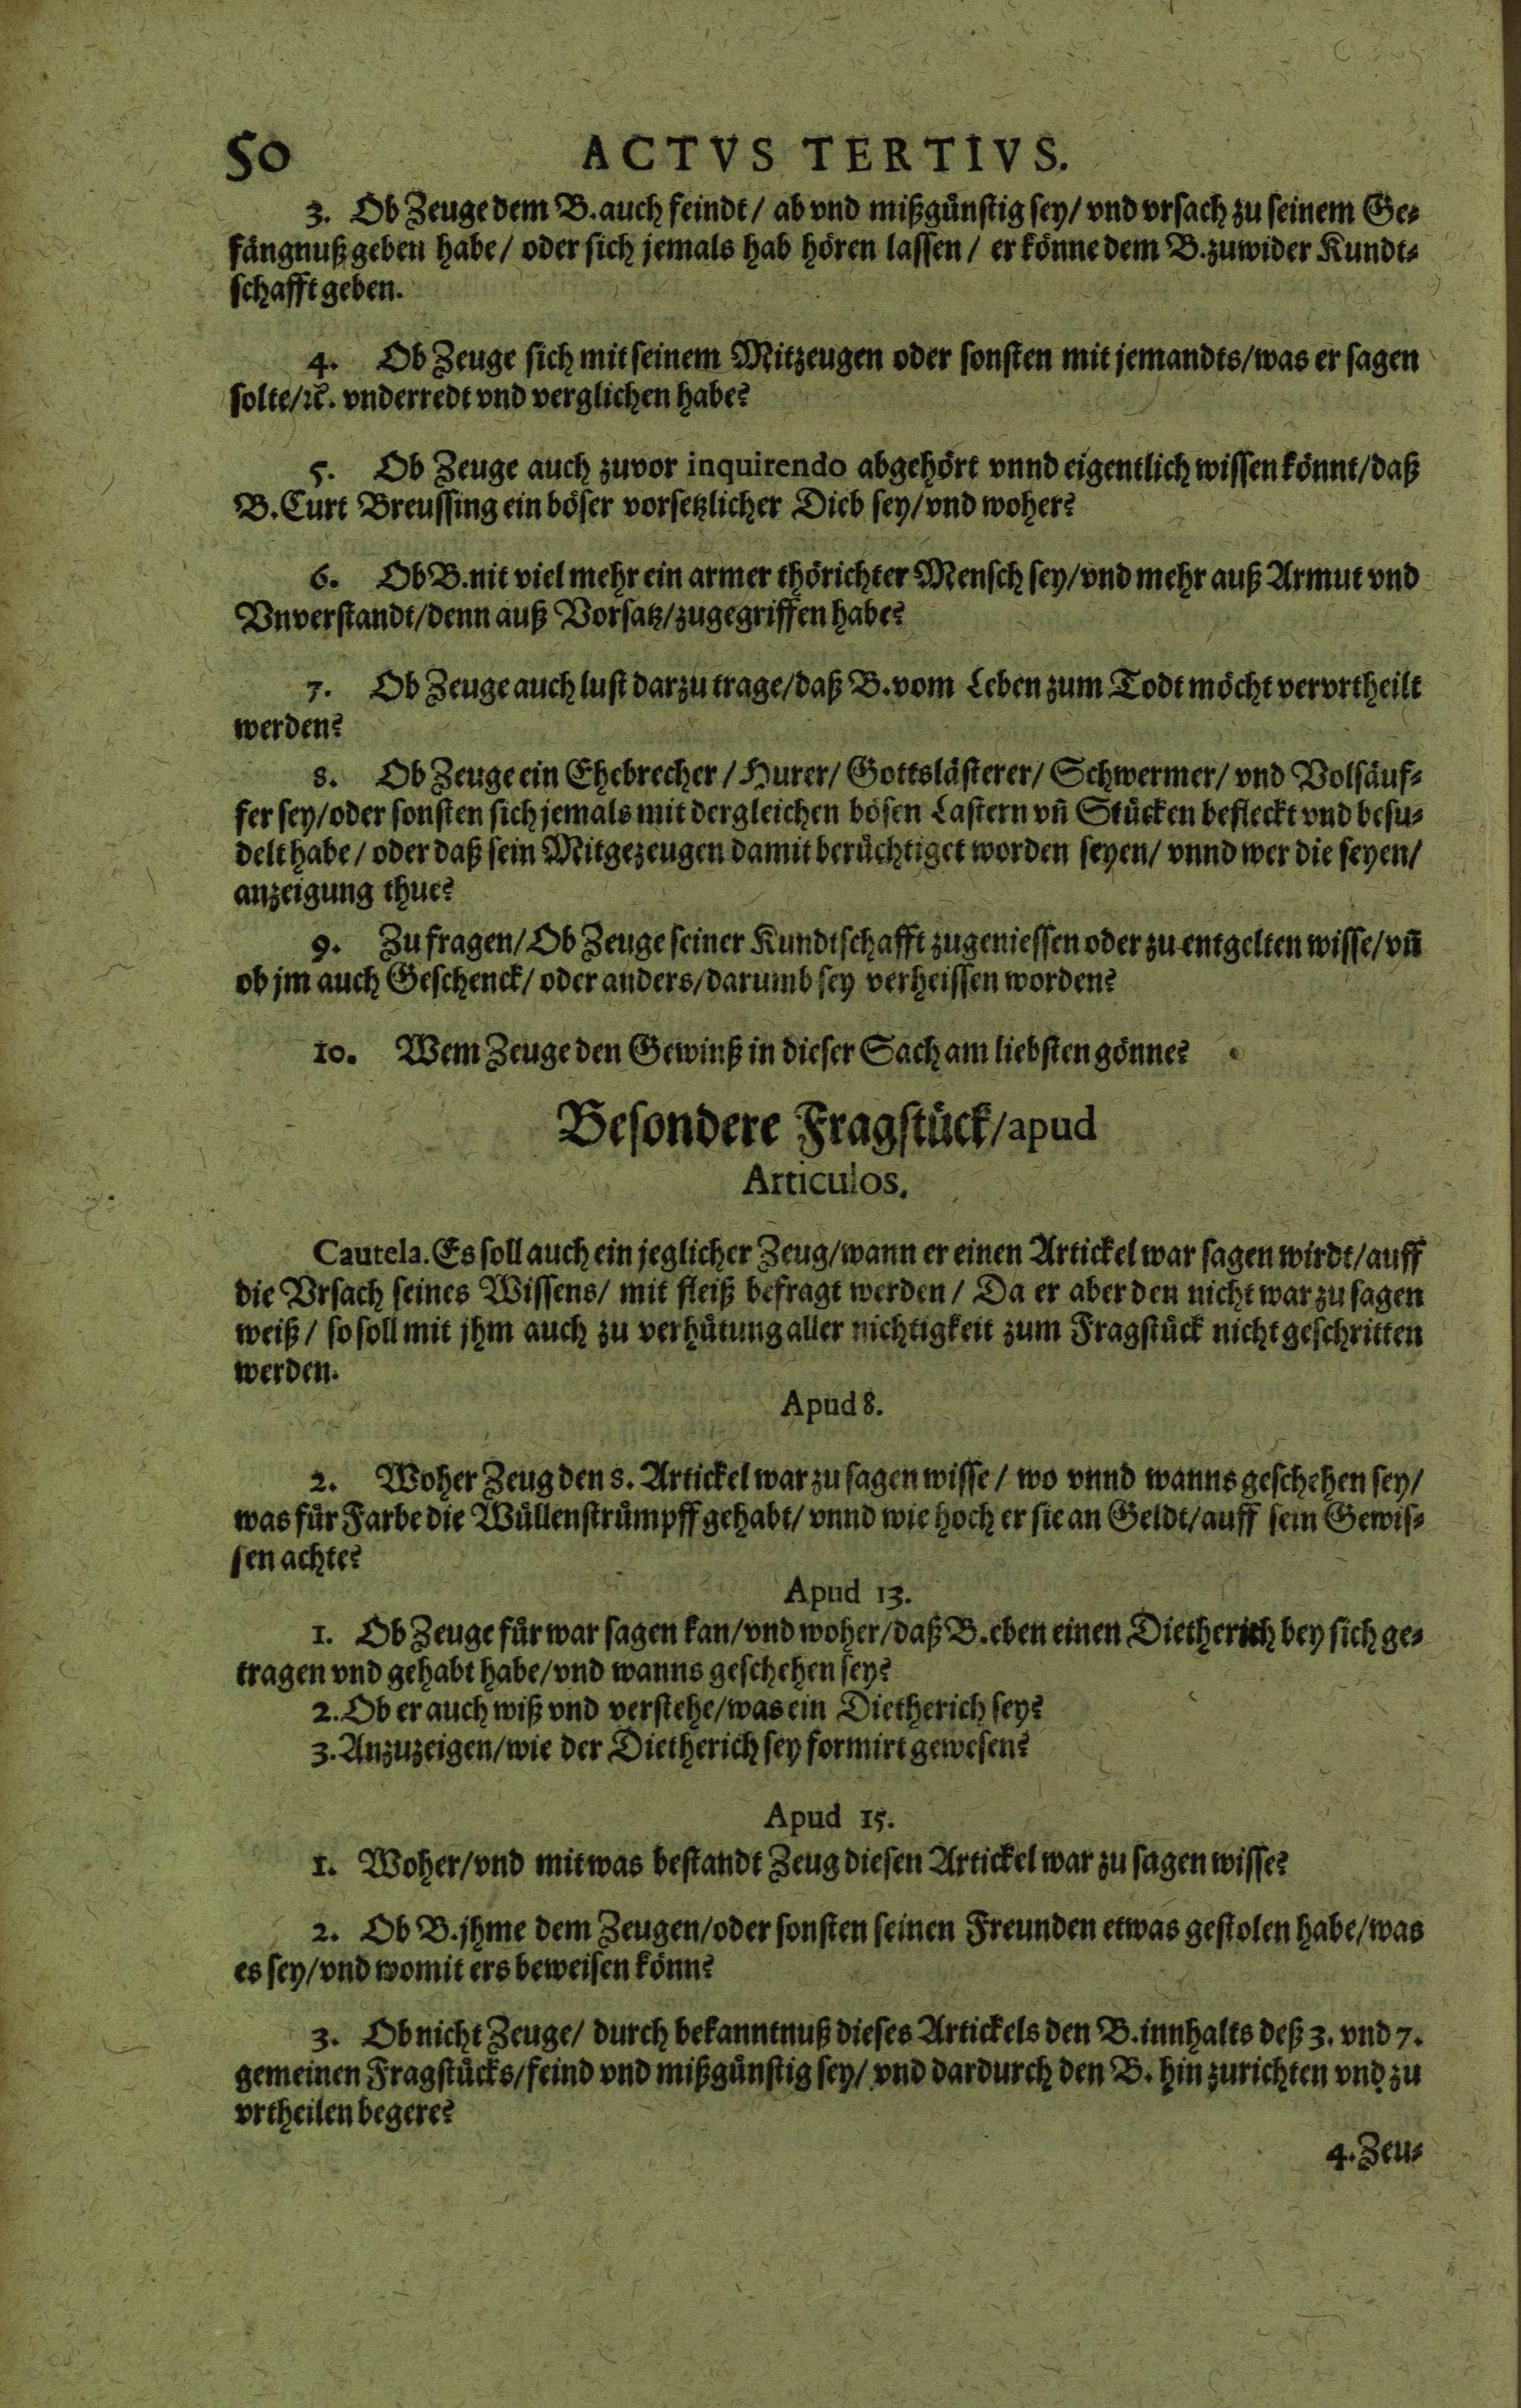 50 ACTVS TERTIVS.
3. Ob Zeuge dem B. auch feindt / ab vnd mißgünstig sey / vnd vrsach zu seinem Ge-
fängnuß geben habe / oder sich jemals hab hören lassen / er könne dem B. zuwider Kundt-
schafft geben.
4. Ob Zeuge sich mit seinem Mitzeugen oder sonsten mit jemandts / was er sagen
solte / ꝛc. vnderredt vnd verglichen habe?
5. Ob Zeuge auch zuvor inquirendo abgehört vnnd eigentlich wissen könnt / daß
B. Curt Breussing ein böser vorsetzlicher Dieb sey / vnd woher?
6. Ob B. nit viel mehr ein armer thörichter Mensch sey / vnd mehr auß Armut vnd
Vnverstandt / denn auß Vorsatz / zugegriffen habe?
7. Ob Zeuge auch lust darzu trage / daß B. vom Leben zum Todt möcht vervrtheilt
werden?
8. Ob Zeuge ein Ehebrecher / Hurer / Gottslästerer / Schwermer / vnd Volsäuf-
fer sey / oder sonsten sich jemals mit dergleichen bösen Lastern vñ Stücken befleckt vnd besu-
delt habe / oder daß sein Mitgezeugen damit berüchtiget worden seyen / vnnd wer die seyen /
anzeigung thue?
9. Zu fragen / Ob Zeuge seiner Kundtschafft zugeniessen oder zu entgelten wisse / vñ
ob jm auch Geschenck / oder anders / darumb sey verheissen worden?
10. Wem Zeuge den Gewinß in dieser Sach am liebsten gönne?
Besondere Fragstück / apud
Articulos.
Cautela. Es soll auch ein jeglicher Zeug / wann er einen Artickel war sagen wirdt / auff
die Vrsach seines Wissens / mit fleiß befragt werden / Da er aber den nicht war zu sagen
weiß / so soll mit jhm auch zu verhütung aller nichtigkeit zum Fragstück nicht geschritten
werden.
Apud 8.
2. Woher Zeug den 8. Artickel war zu sagen wisse / wo vnnd wanns geschehen sey /
was für Farbe die Wüllenstrümpff gehabt / vnnd wie hoch er sie an Geldt / auff sein Gewis-
sen achte?
Apud 13.
1. Ob Zeuge für war sagen kan / vnd woher / daß B. eben einen Dietherich bey sich ge-
tragen vnd gehabt habe / vnd wanns geschehen sey?
2. Ob er auch wiß vnd verstehe / was ein Dietherich sey?
3. Anzuzeigen / wie der Dietherich sey formirt gewesen?
Apud 15.
1. Woher / vnd mit was bestandt Zeug diesen Artickel war zu sagen wisse?
2. Ob B. jhme dem Zeugen / oder sonsten seinen Freunden etwas gestolen habe / was
es sey / vnd womit ers beweisen könn?
3. Ob nicht Zeuge / durch bekanntnuß dieses Artickels den B. innhalts deß 3. vnd 7.
gemeinen Fragstücks / feind vnd mißgünstig sey / vnd dardurch den B. hin zurichten vnd zu
vrtheilen begere?
4. Zeu-